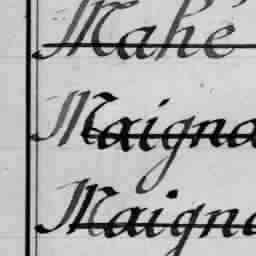 Mahé
Maigna
Maigna